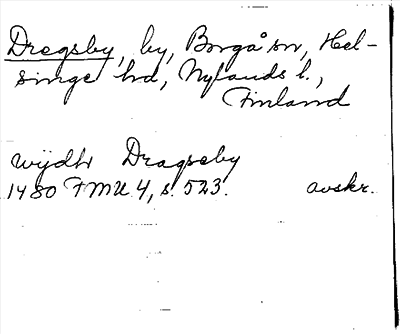 Dregsby, by, Borgå sn, Hel-
singe hd, Nylands l.,
Finland
wijdh Dragsby
1480 FMU 4, s. 523. avskr.